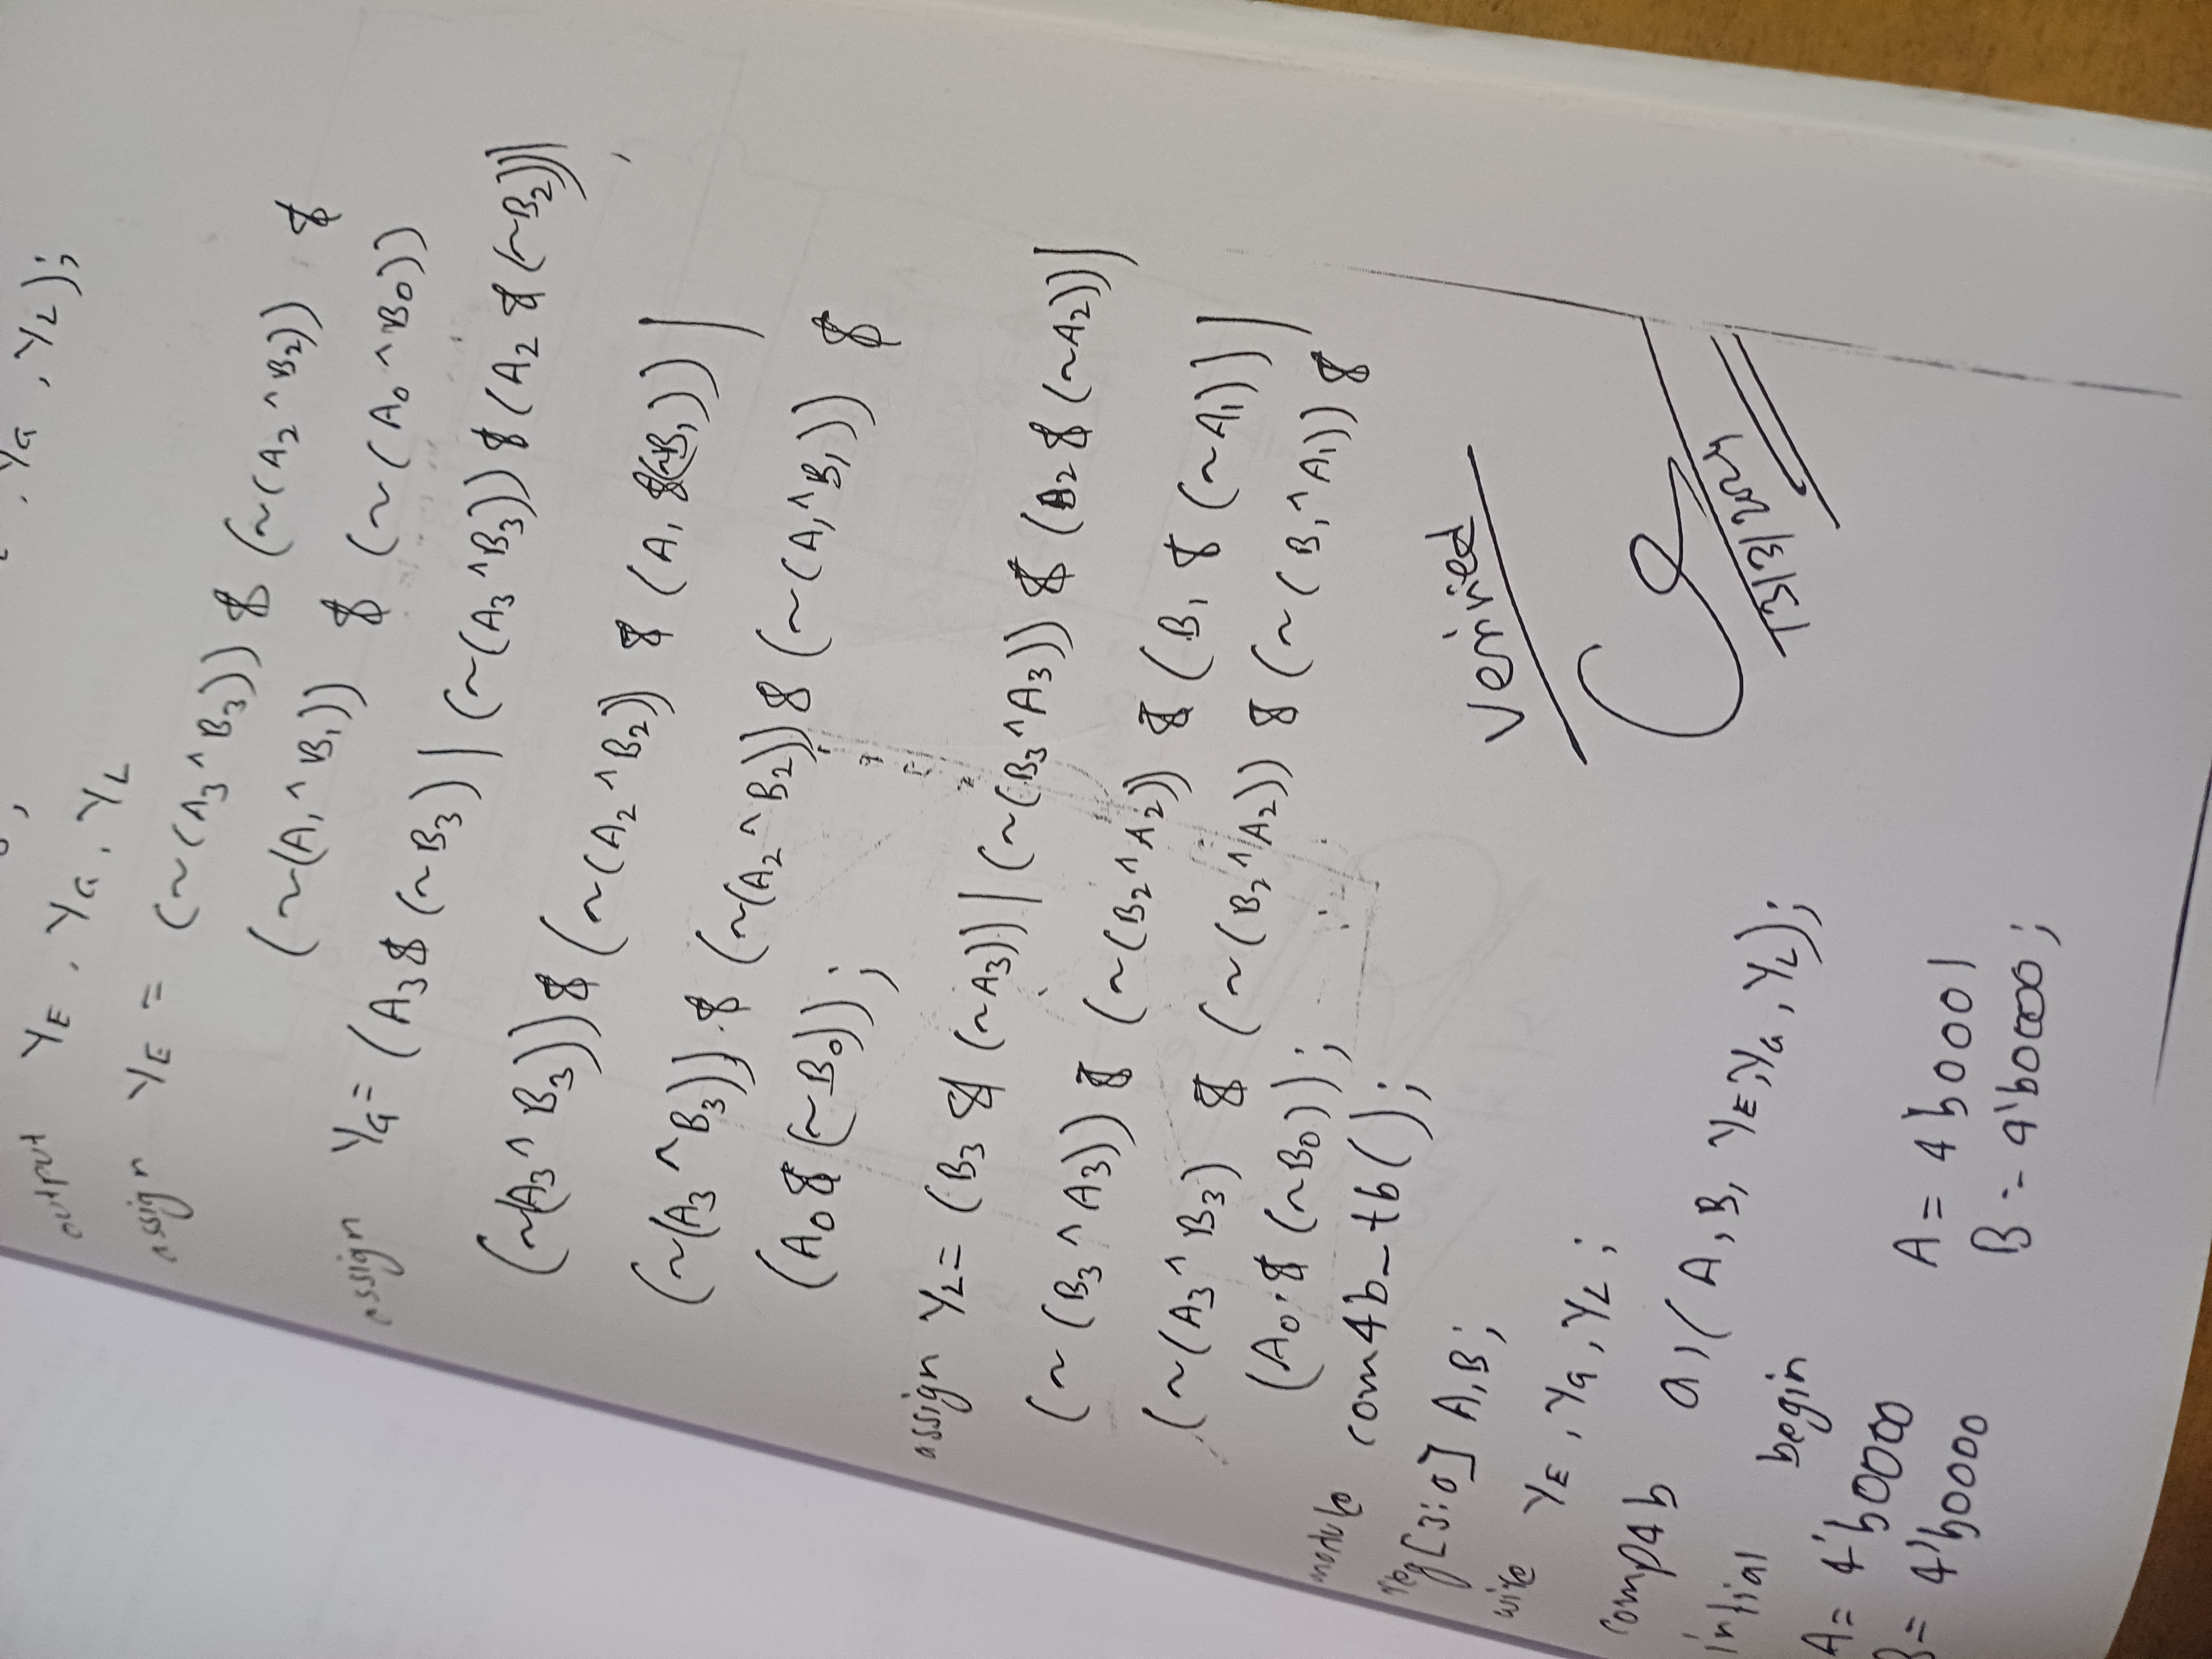 , Ya , YL);
output YE , Ya , YL
assign YE = (~(A3^B3)) & (~(A2^B2)) &
(~(A1^B1)) & (~(A0^B0))
assign Ya = (A3 & (~B3) | (~(A3^B3)) & (A2 & (~B2))|
(~(A3^B3)) & (~(A2^B2)) & (A1 &(~B1)) |
(~(A3^B3)) & (~(A2^B2)) & (~(A1^B1)) &
(A0 & (~B0));
assign YL = (B3 & (~A3)) | (~(B3^A3)) & (B2 & (~A2))|
(~(B3^A3)) & (~(B2^A2)) & (B1 & (~A1)) |
(~(A3^B3) & (~(B2^A2)) & (~(B1^A1)) &
(A0 & (~B0));
module com4b_tb();
reg[3:0] A,B;
wire YE , Ya , YL ;
comp4b a1( A, B, YE, Ya , YL);
intial begin
A= 4'b0000
B= 4'b0000
A = 4b0001
B = 4'b0000 ;
Verified
13/3/2024